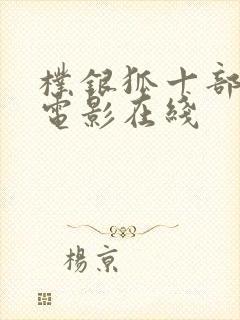 樸銀狐十部
電影在綫
楊京